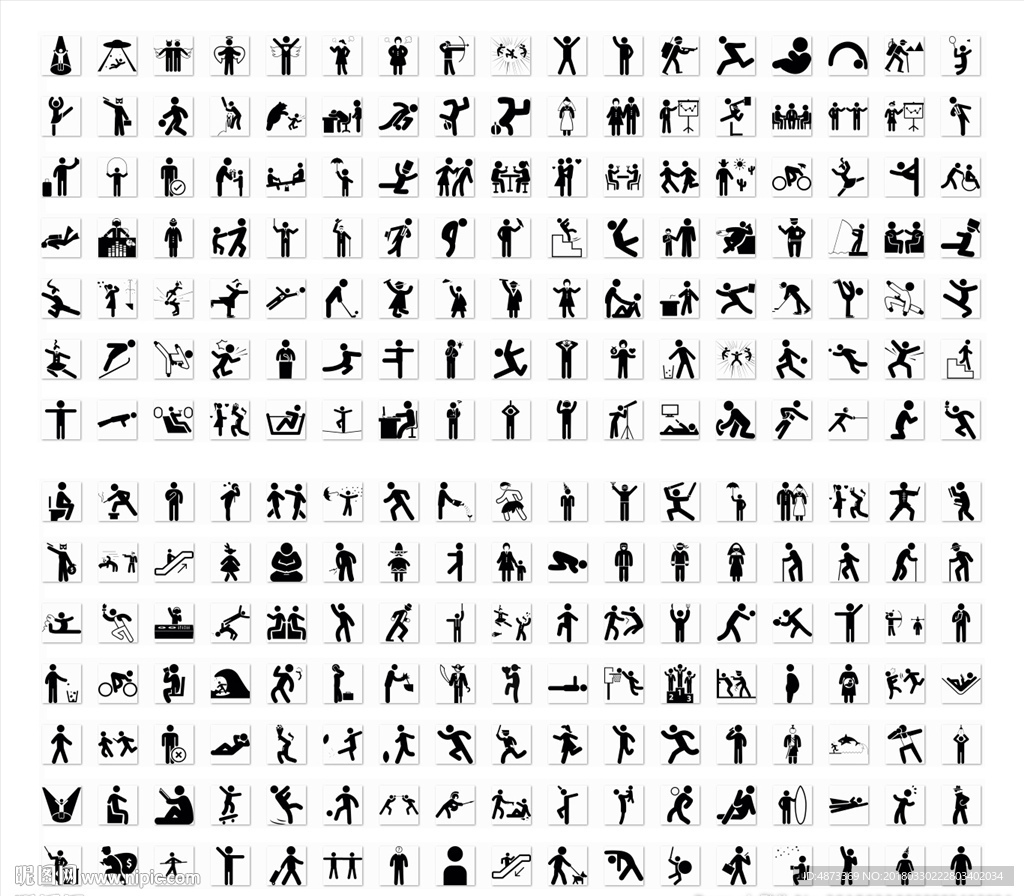 2 1 3
$
?
昵图网 www.nipic.com
ID:4873369 NO:20180330222803402034